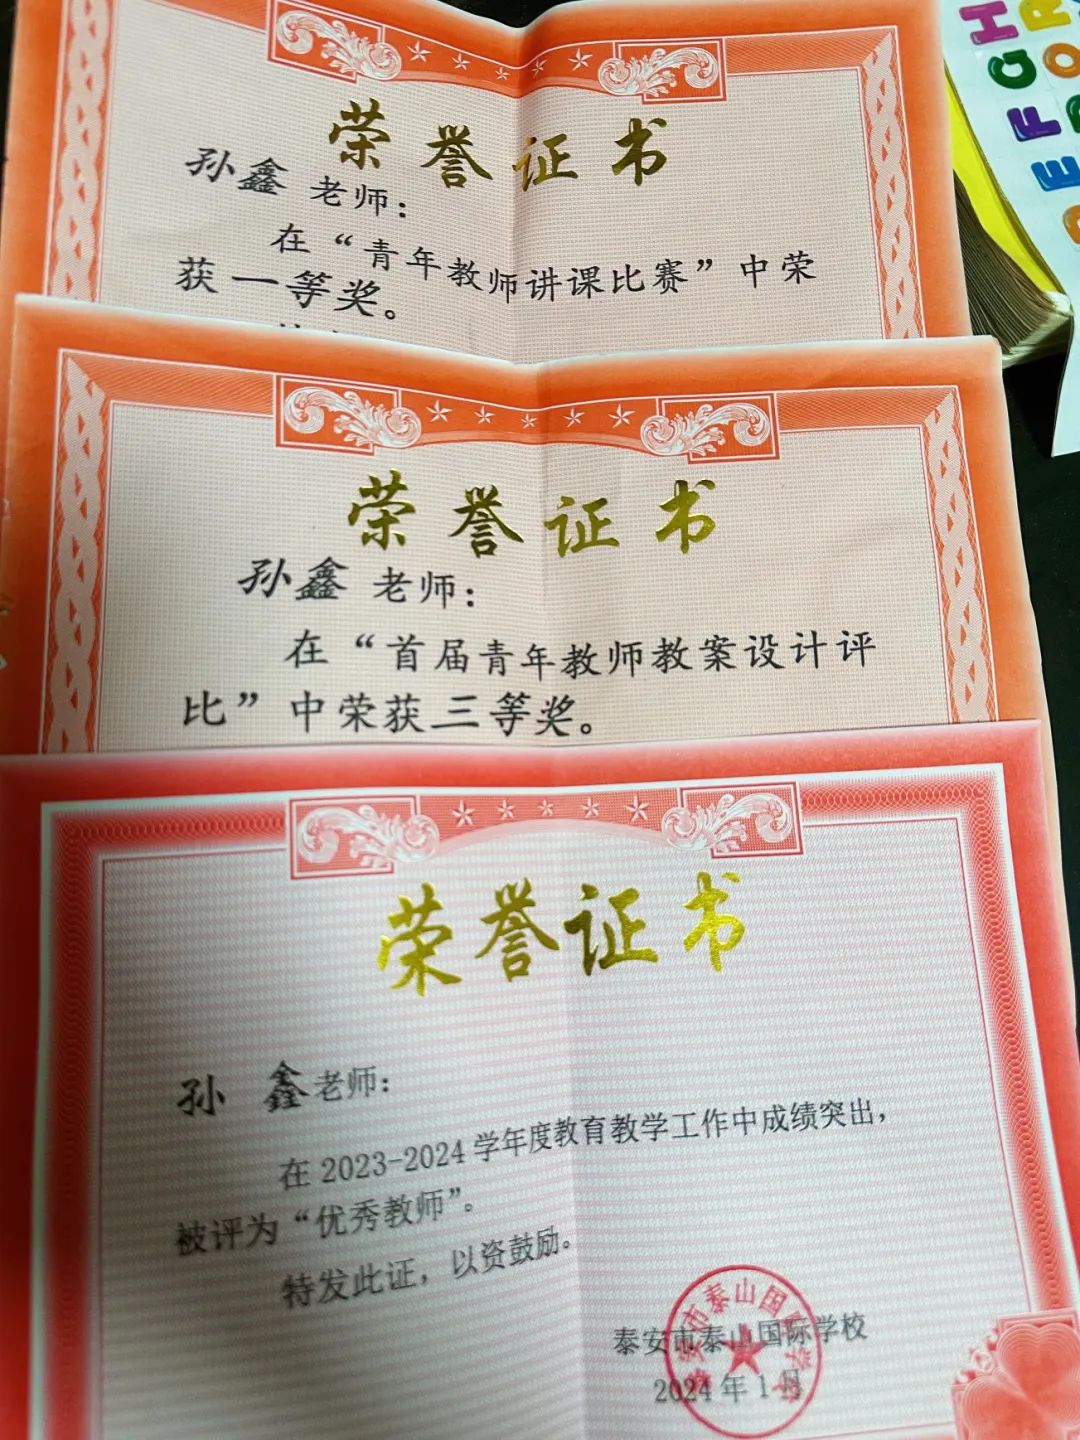 荣誉证书
孙鑫 老师：
在“青年教师讲课比赛”中荣
获一等奖。
荣誉证书
孙鑫 老师：
在“首届青年教师教案设计评
比”中荣获三等奖。
荣誉证书
孙 鑫 老师：
在 2023-2024 学年度教育教学工作中成绩突出，
被评为“优秀教师”。
特发此证，以资鼓励。
泰安市泰山国际学校
2024 年 1 月
泰安市泰山国际学校
H
G
F
E
R
O